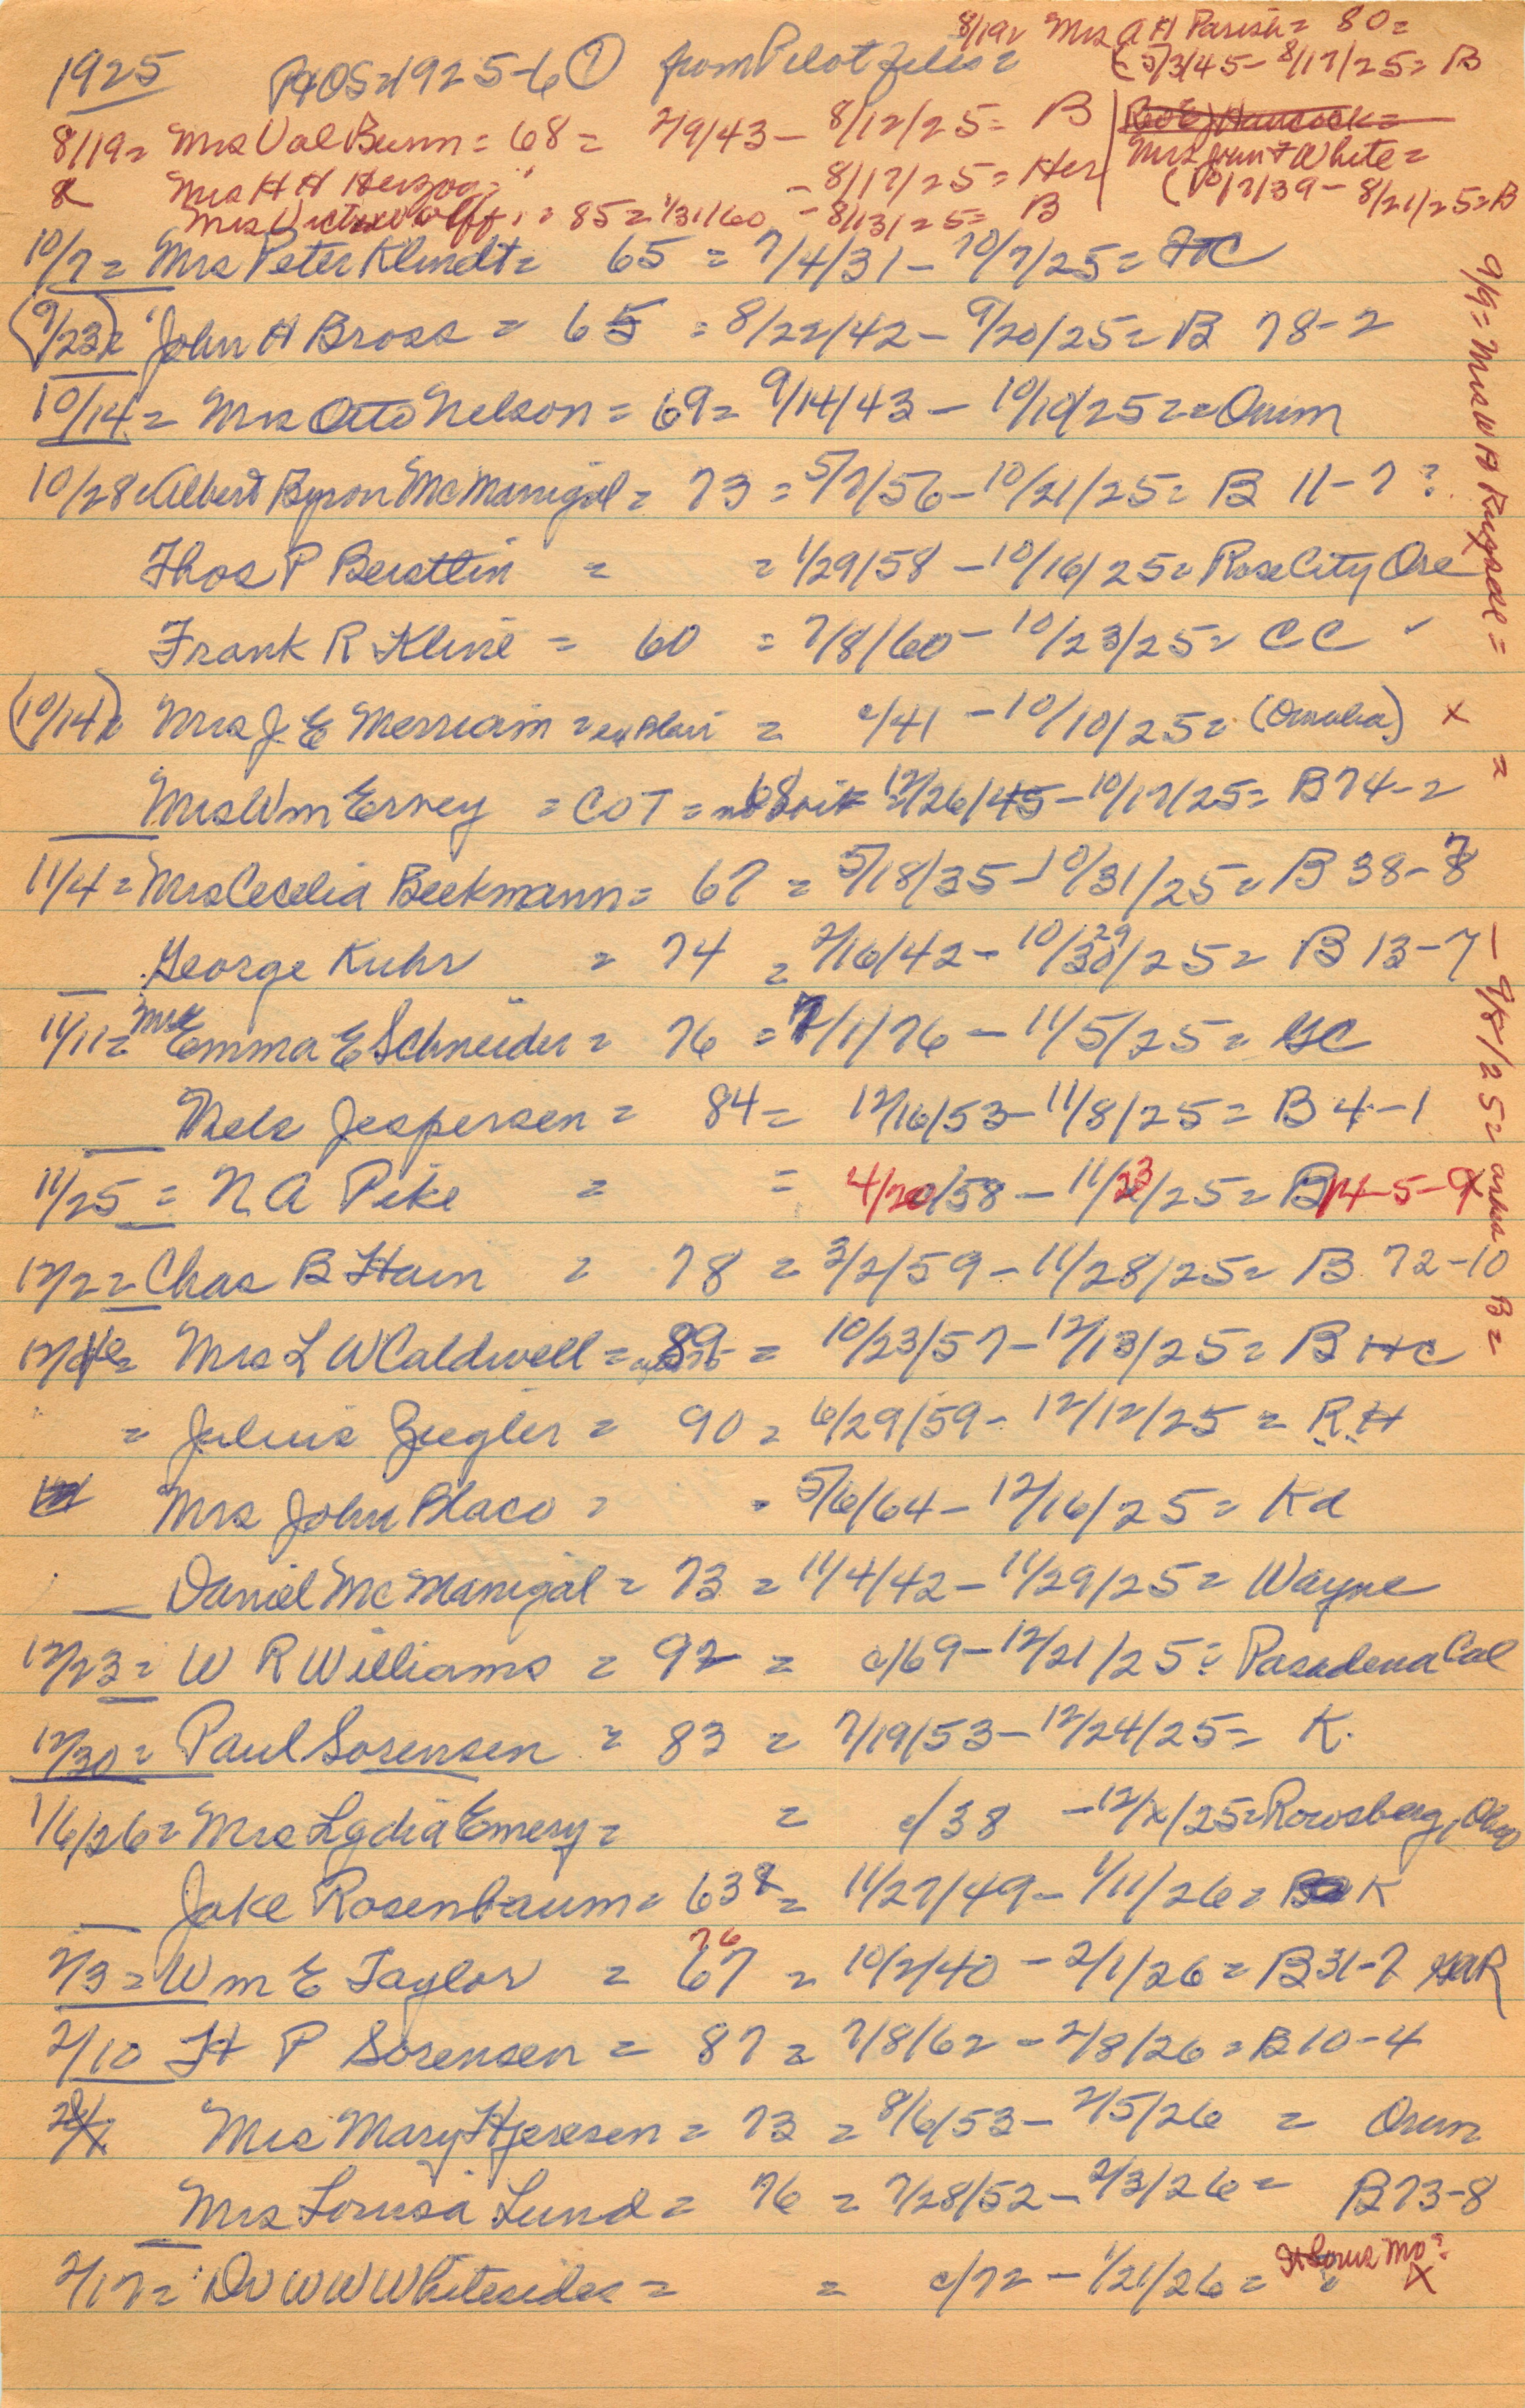 8/19= Mrs A H Parish= 80=
1925 1925-6 ① from Pilot files=
8/17/25= B
8/19= Mrs Val Bunn= 68= 2/9/43- 8/12/25= B
Hancock=
Mrs H H Herzog= -8/17/25= Her
Mrs John F White=
Mrs Victor Wolff= 85= 1/31/60 -8/13/25= B
(10/17/39- 8/21/25=B
10/7= Mrs Peter Klindt= 65 = 7/4/31- 10/7/25= FC
(9/23)= John H Bross = 65 =8/22/42- 9/20/25= B 78-2
10/14= Mrs Otto Nelson= 69= 9/14/43- 10/10/25== Orum
10/28= Albert Byron McManigal= 73 = 5/7/56-10/21/25= B 11-7?
Thos P Berattin = = 1/29/58 -10/16/25= Rose City Ore
Frank R Kline = 60 = 7/8/60- 10/23/25= CC
(10/14)= Mrs J E Merriam = ex Blair = c/41 -10/10/25= (Omaha) x
Mrs Wm Ervey = COT = 68 12/26/45-10/17/25= B74-2
11/4= Mrs Cecelia Beekmann= 67 = 5/18/35-10/31/25= B 38-7
George Kuhr = 74 = 2/16/42- 10/29/25= B 13-7
11/11= Mrs Emma E Schneider= 76 = 7/1/76 - 11/5/25= GC
Nels Jespersen = 84= 12/16/53- 11/8/25= B 4-1
11/25 = N A Pike = = 4/20/58- 11/23/25= B 14-5-9
12/2= Chas B Hain = 78 = 3/2/59- 11/28/25= B 72-10
12/16= Mrs L W Caldwell= 89 = 10/23/57- 12/13/25= B HC
= Julius Ziegler= 90= 6/29/59- 12/12/25 = R.H
Mrs John Blaco= 5/6/64- 12/16/25= Kd
Daniel McManigal= 73 = 11/4/42- 11/29/25= Wayne
12/23= W R Williams = 92 = c/69-12/21/25= Pasadena Cal
12/30= Paul Sorensen = 83 = 7/19/53- 12/24/25= K.
1/6/26= Mrs Lydia Emery= = c/38 -12/x/25= Rowsberg, Ohio
Jake Rosenbaum= 63 = 11/27/49- 1/11/26= K
76
2/3= Wm E Taylor = 67 = 10/2/40 -2/1/26= B31-7 GAR
2/10 H P Sorensen = 87= 7/8/62 -2/8/26= B10-4
Mrs Mary Hjeresen= 73 = 8/6/53- 2/5/26 = Orum
Mrs Lorusa Lund= 76 = 7/28/52- 2/3/26= B73-8
2/17= Dr W W Whitesides= = c/72 -1/21/26= St Louis Mo? x
9/9= Mrs W H = - 9/8/25= B=